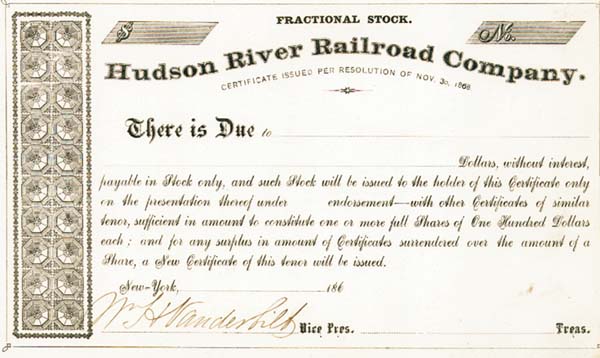 FRACTIONAL STOCK.
$ No.
Hudson River Railroad Company.
CERTIFICATE ISSUED PER RESOLUTION OF NOV. 30, 1868
There is Due to
Dollars, without interest,
payable in Stock only, and such Stock will be issued to the holder of this Certificate only
on the presentation thereof under endorsement—with other Certificates of similar
tenor, sufficient in amount to constitute one or more full Shares of One Hundred Dollars
each; and for any surplus in amount of Certificates surrendered over the amount of a
Share, a New Certificate of this tenor will be issued.
New-York, 186
Wm H Vanderbilt Vice Pres. Treas.